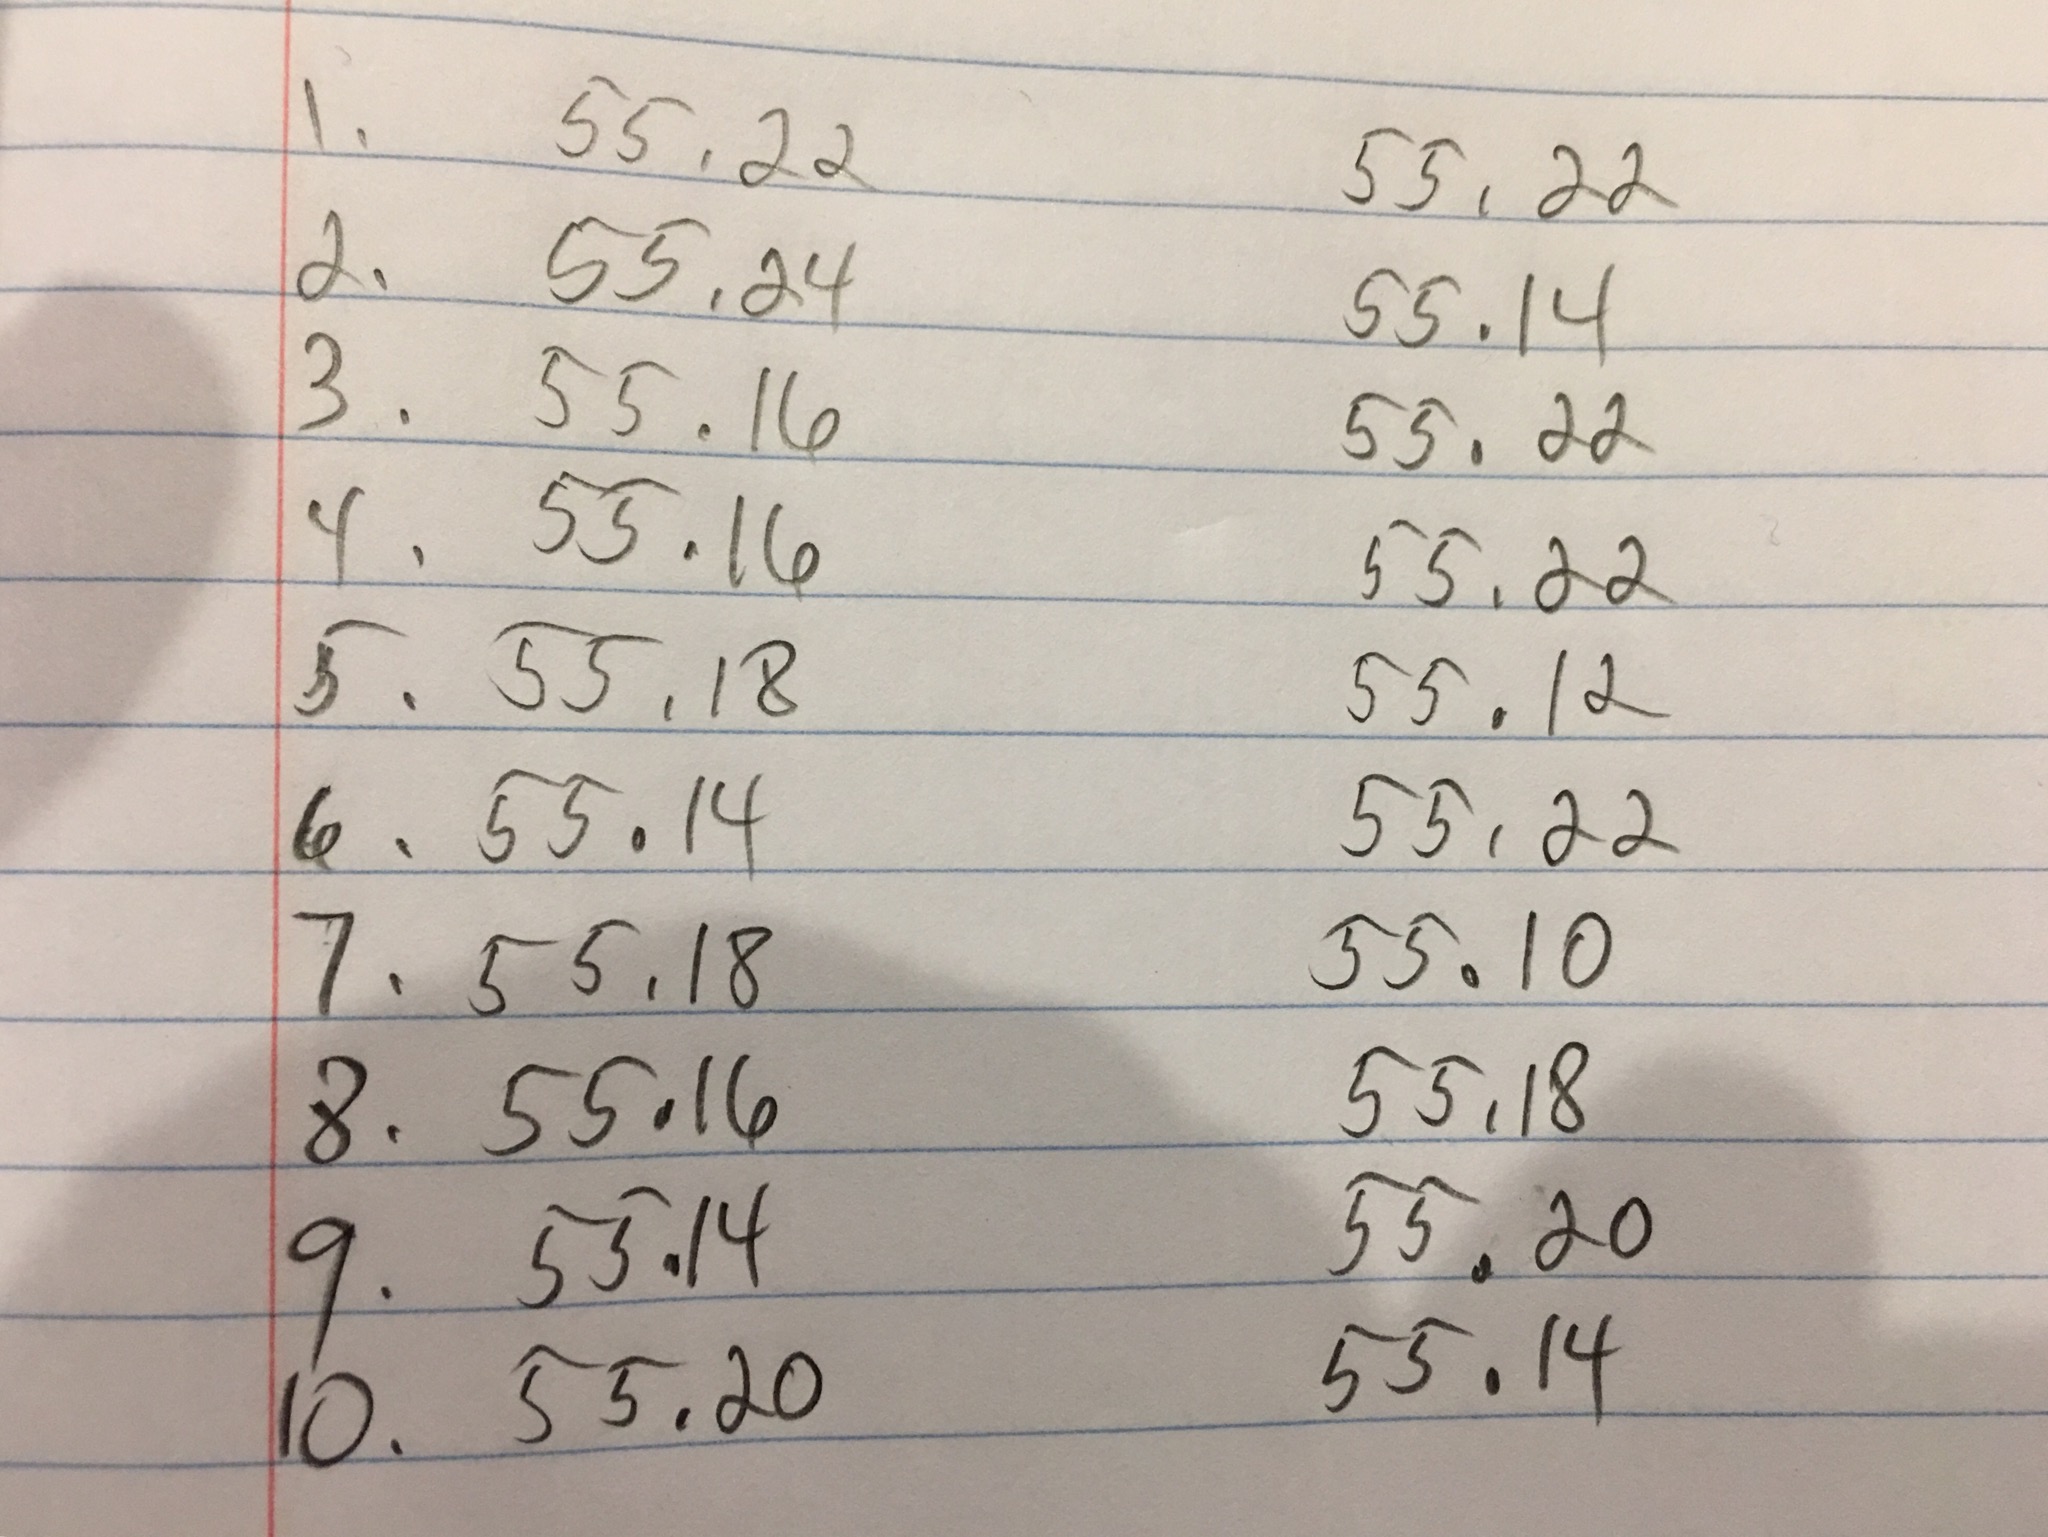 1. 55.22 55.22
2. 55.24 55.14
3. 55.16 55.22
4. 55.16 55.22
5. 55.18 55.12
6. 55.14 55.22
7. 55.18 55.10
8. 55.16 55.18
9. 55.14 55.20
10. 55.20 55.14